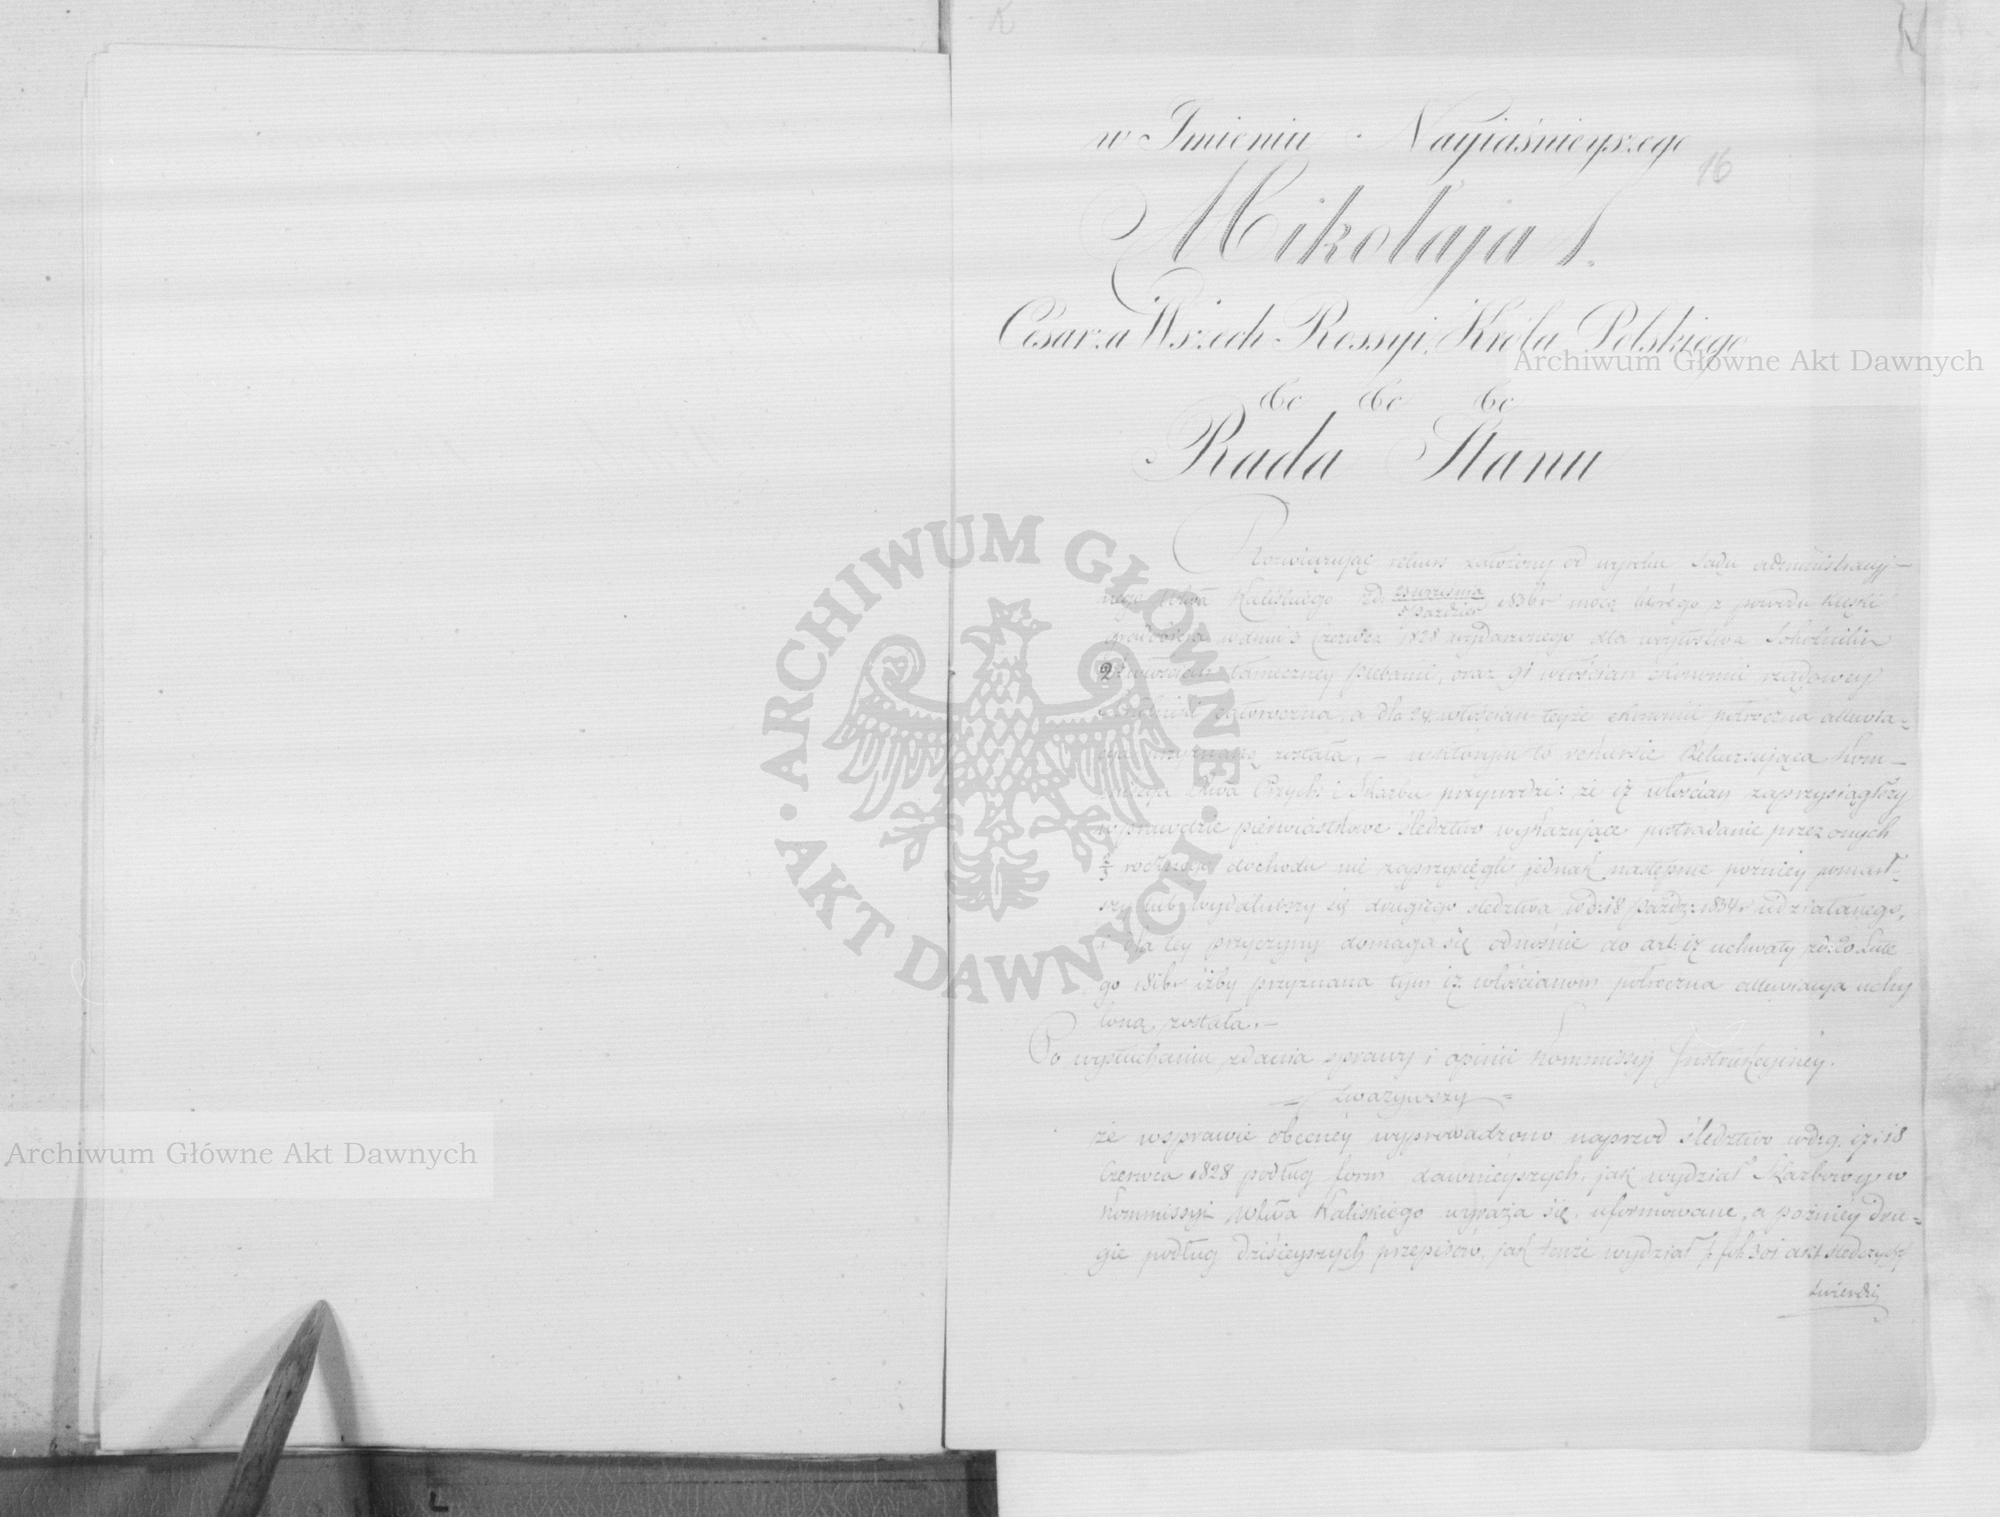 w Imieniu Nayjaśnieyszego
16
Mikołaja I.
Cesarza Wszech Rossyi, Króla Polskiego
&c &c &c
Rada Stanu
Rozwiązując rekurs założony od wyroku Sądu administracyj-
nego Wdtwa Kaliskiego z d. 23 września / 5 Paździer 1836 r mocą którego z powodu klęski
gradobicia w dniu 3 Czerwca 1828 wydarzonego dla
włościan tameczney plebanii, oraz 91 włościan ekonomii rządowey
całoroczna, a dla 24 włościan teyże ekonomii półroczna allewia-
cya przyznaną została. — w którym to rekursie Rekurująca Kom-
missya Wdtwa Przych: i Skarbu przywodzi: że 17 włościan zaprzysiągłszy
wprawdzie pierwiastkowe śledztwo wykazujące postradanie przez onych
rocznego dochodu nie zaprzysięgli jednak następnie pozniey pomarł-
szy lub wydaliwszy się drugiego śledztwa w d: 18 Paźdz: 1834 r udziałanego,
i dla tey przyczyny domaga się odnośnie do art: 17 uchwały z d: 20 Lute
go 1816 r iżby przyznana tym 17 włościanom półroczna allewiacya uchy
loną została. —
Po wysłuchaniu zdania sprawy i opinii Kommissyi Instrukcyiney.
Zważywszy
że w sprawie obecney wyprowadzono naprzod śledztwo w d: 9, 17 i 18
Czerwca 1828 podług form dawnieyszych, jak wydział Skarbowy w
Kommissyi Wdtwa Kaliskiego wyraża się, uformowane, a poźniey dru-
gie podług dzisieyszych przepisów, jak tenże wydział fol: 301 akt śledczych
twierdzi
Archiwum Główne Akt Dawnych
Archiwum Główne Akt Dawnych
ARCHIWUM GŁÓWNE • AKT DAWNYCH •